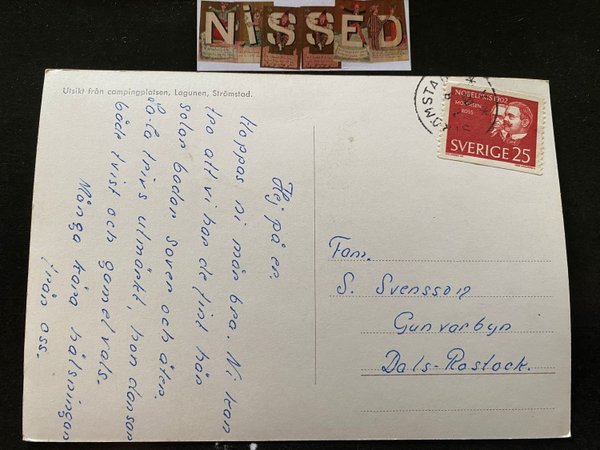 NiSSED
Utsikt från campingplatsen, Lagunen, Strömstad.
NOBELPRIS 1902
ROSS
SVERIGE 25
Hej på er.
Hoppas ni mår bra. Ni kan
tro att vi har de fint här
solar badar sover och äter.
trivs utmärkt, han dansar
både trist och gammelvals.
Många kära hälsningar
från oss.
Fam.
S. Svensson
Gunvarbyn
Dals-Rostock.